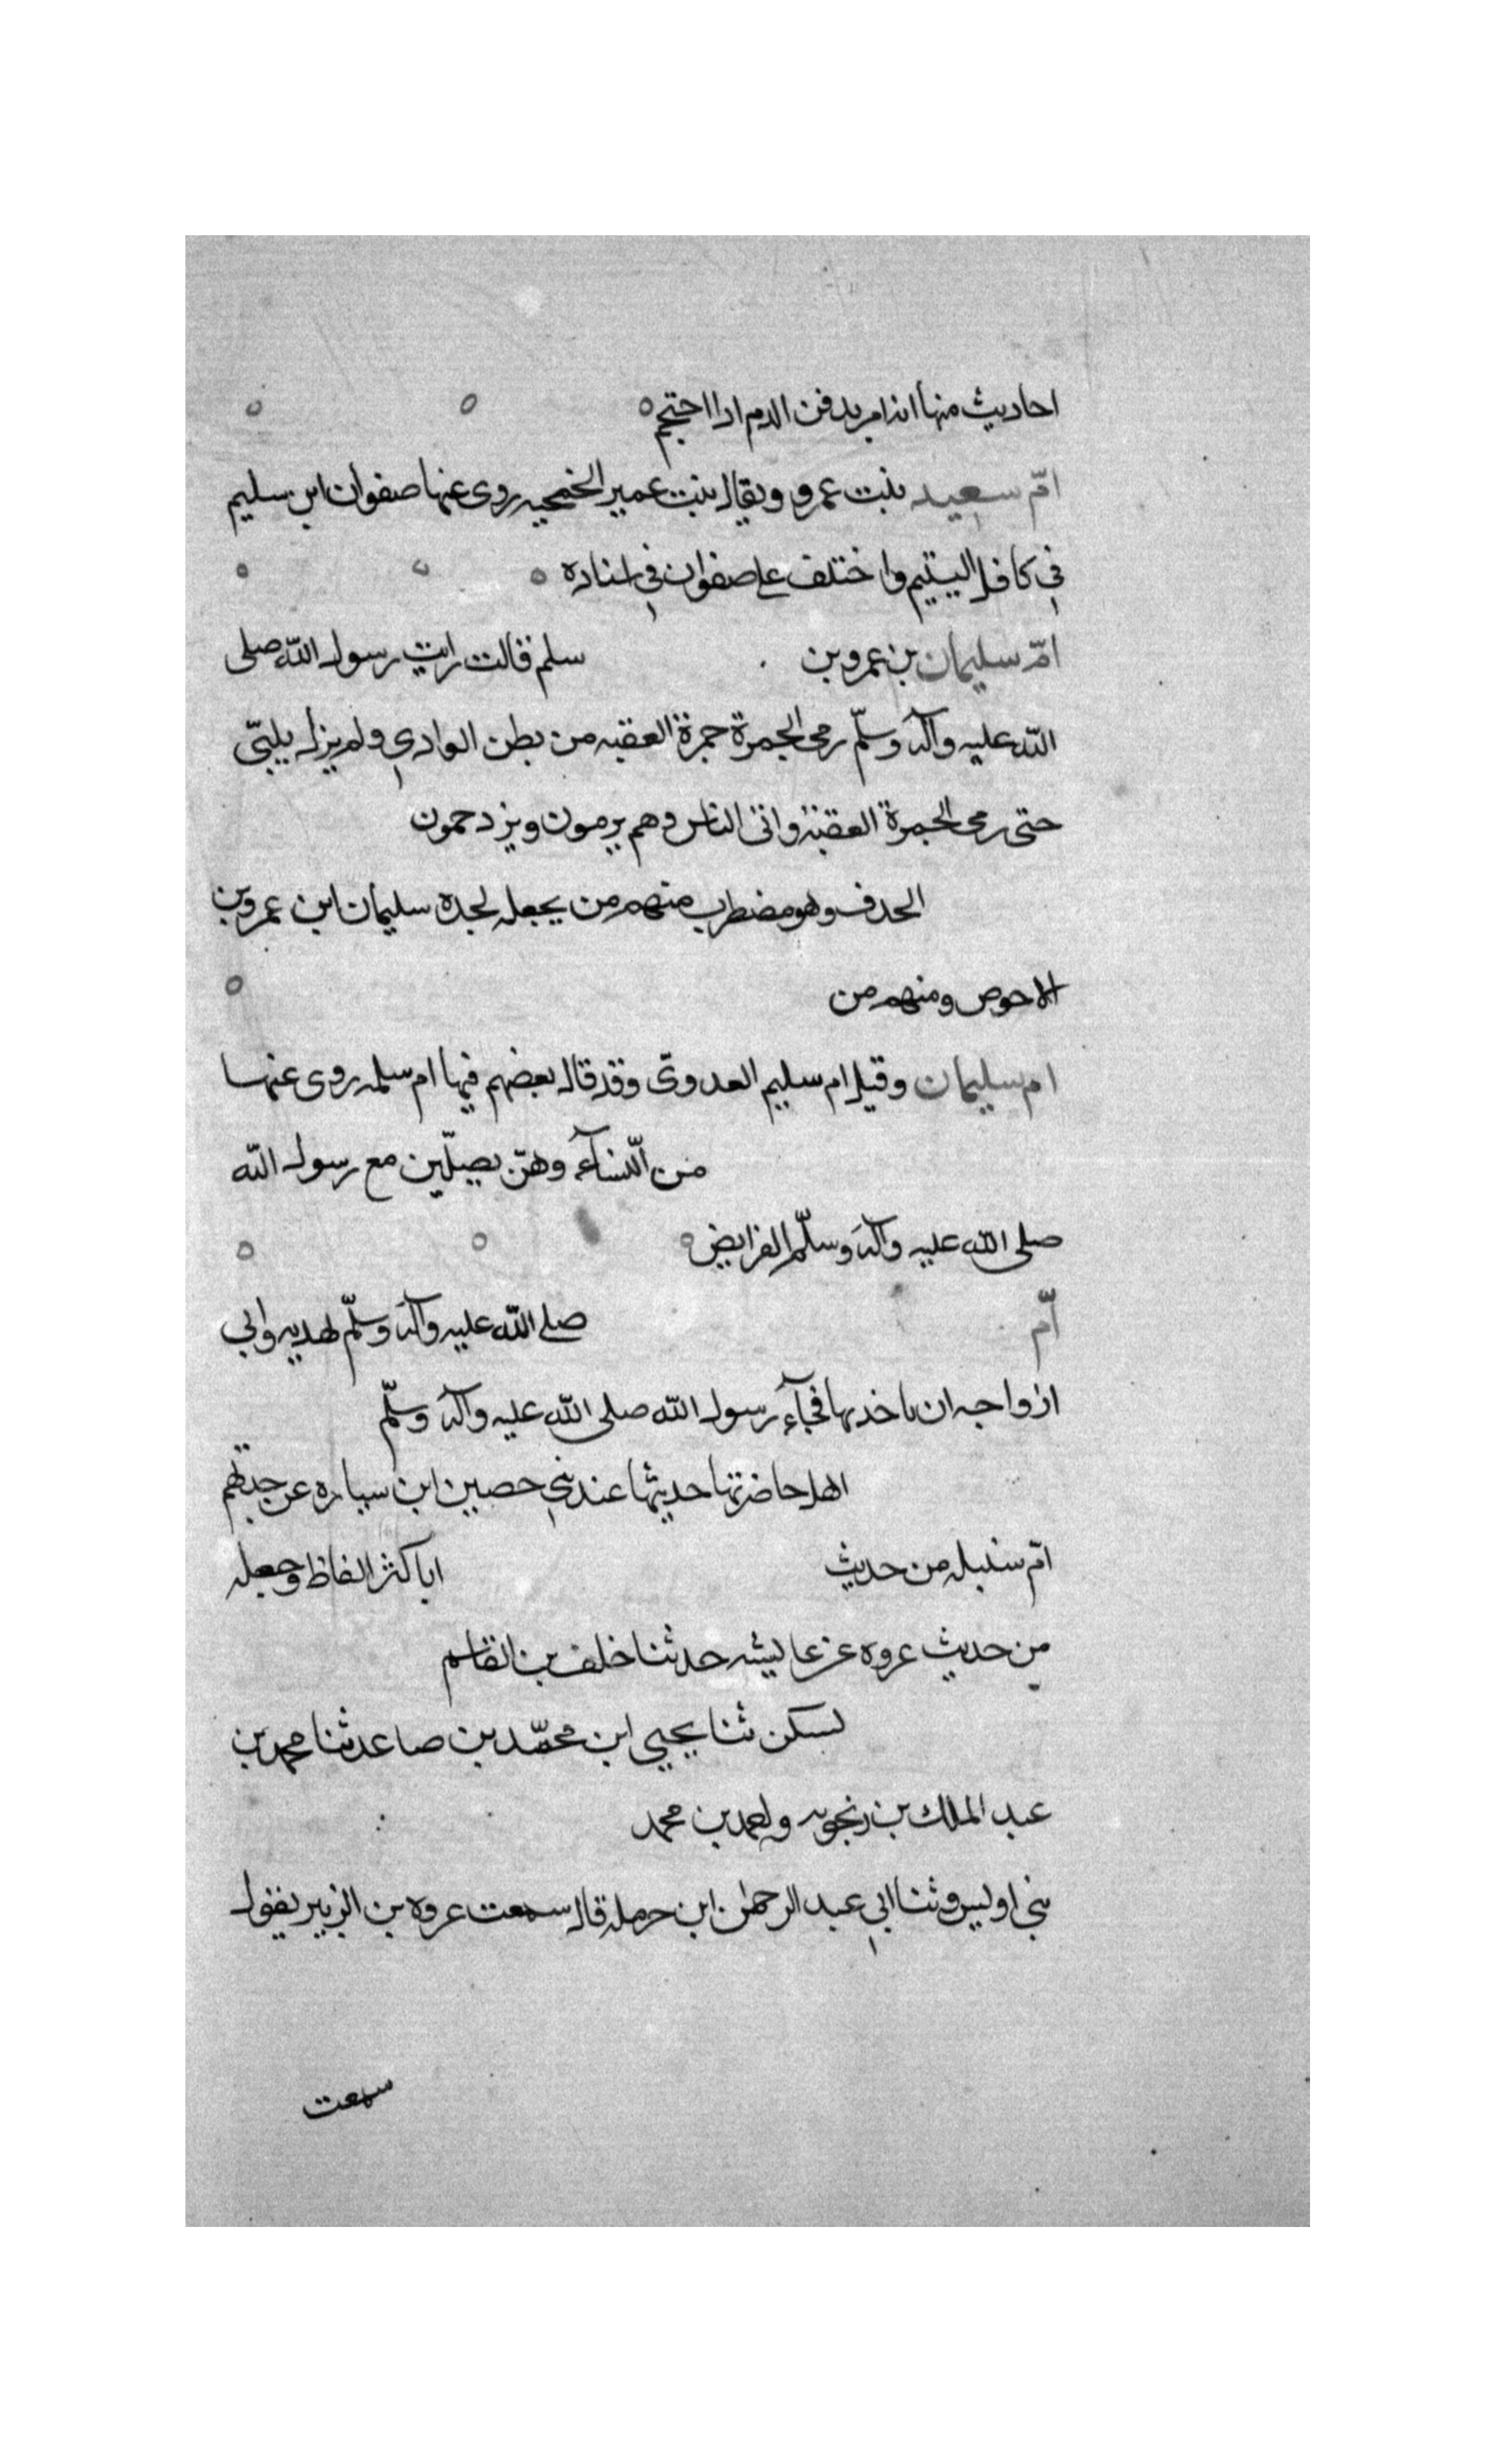 احاديث منها انه امر بدفن الدم اذا احتجم
امّ سعيد بنت عمرو ويقال بنت عمير الجمحيه روى عنها صفوان ابن سليم
في كافل اليتيم واختلف على صفوان في اسناده
امّ سليمان بن عمرو بن سلم قالت رايت رسول الله صلى
الله عليه وآله وسلّم رمى الجمرة جمرة العقبه من بطن الوادي ولم يزل يلبّي
حتى رمى الجمرة العقبة واتى الناس وهم يرمون ويزدحمون
الحذف وهو مضطرب منهم من يجعله لجده سليمان ابن عمرو بن
الاحوص ومنهم من
ام سليمان وقيل ام سليم العدوى وقد قال بعضهم فيها ام سلمه روى عنها
من النّسآء وهنّ يصلّين مع رسول الله
صلى الله عليه وآله وسلّم الفرايض
امّ صلى الله عليه وآله وسلّم لهديه وابي
ازواجه ان ياخذنها فجآء رسول الله صلى الله عليه وآله وسلّم
اهل حاضرتنا حديثها عند بني حصين ابن سباره عن جدتهم
امّ سنبله من حديث اباكثر الفاظ وجعله
من حديث عروه عن عايشه حدثنا خلف بن القاسم
لسكن ثنا يحيى ابن محمّد بن صاعد ثنا محمد بن
عبد الملك بن زنجويه واحمد بن محمد
بني اويس وثنا ابي عبد الرحمن ابن حرمله قال سمعت عروه بن الزبير يقول
سمعت